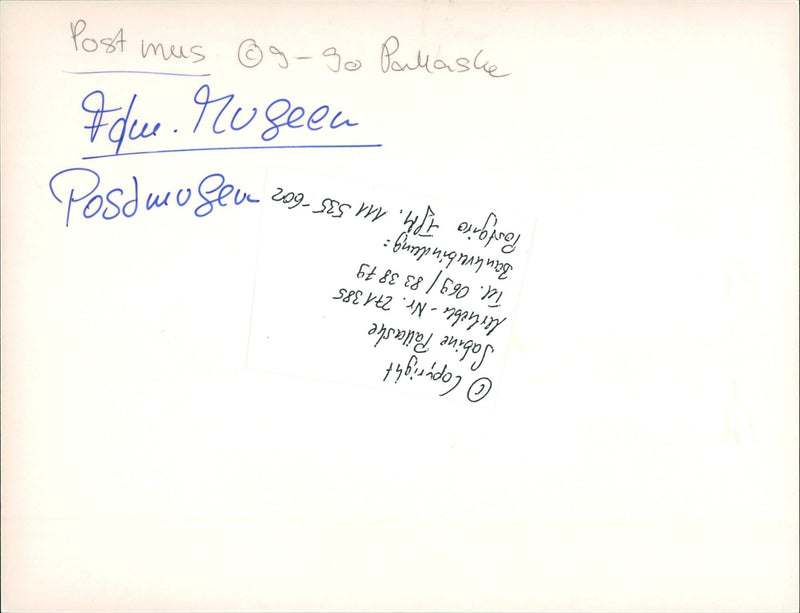 Postmus © 9-90 Pallaske
Ffm. Museen
Postmuseum
© Copyright
Sabine Pallaske
Urheber-Nr. 271385
Tel. 069/833879
Bankverbindung:
Postgiro Ffm. 111 535-602